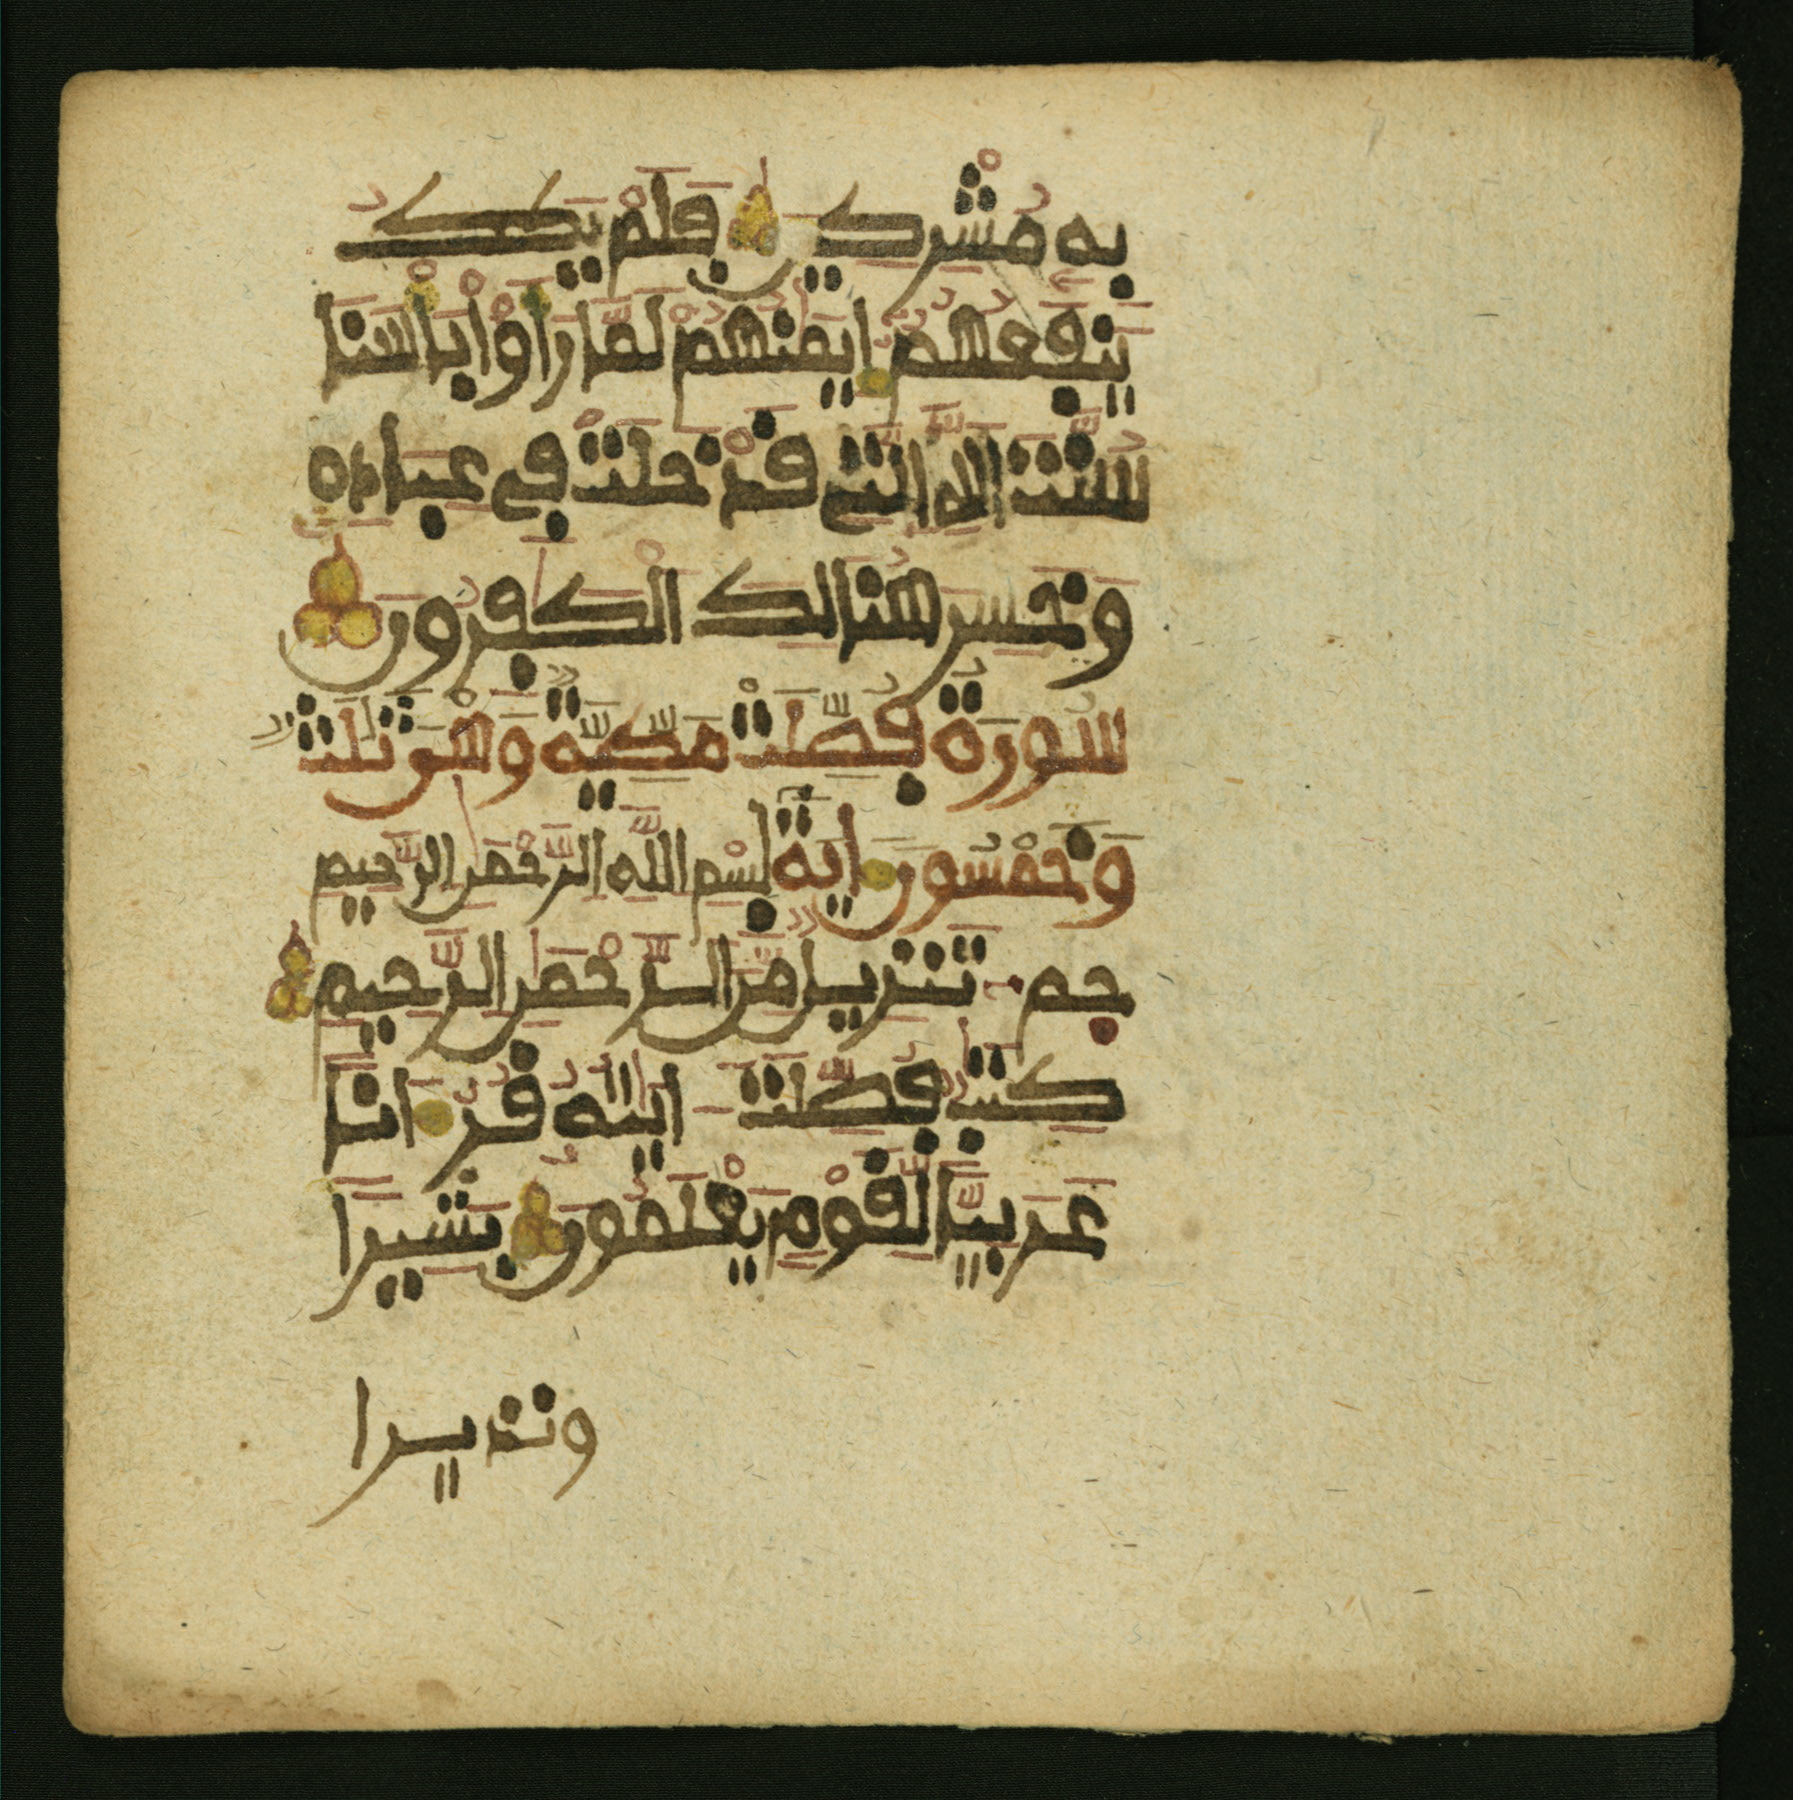 بِهِ مُشْرِكِينَ فَلَمْ يَكُ
يَنفَعُهُمُ إِيمَنُهُمْ لَمَّا رَأَوْا بَأْسَنَا
سُنَّتَ اللَّهِ الَّتِي قَدْ خَلَتْ فِي عِبَادِهِ
وَخَسِرَ هُنَالِكَ الْكَفِرُونَ
سُورَةُ فُصِّلَتْ مَكِّيَّةٌ وَهِىَ ثَلَثٌ
وَخَمْسُونَ ءَايَةً بِسْمِ اللَّهِ الرَّحْمَنِ الرَّحِيمِ
حم تَنزِيلٌ مِّنَ الرَّحْمَنِ الرَّحِيمِ
كِتَبٌ فُصِّلَتْ ءَايَتُهُ قُرْءَانًا
عَرَبِيًّا لِّقَوْمٍ يَعْلَمُونَ بَشِيرًا
ونذيرا